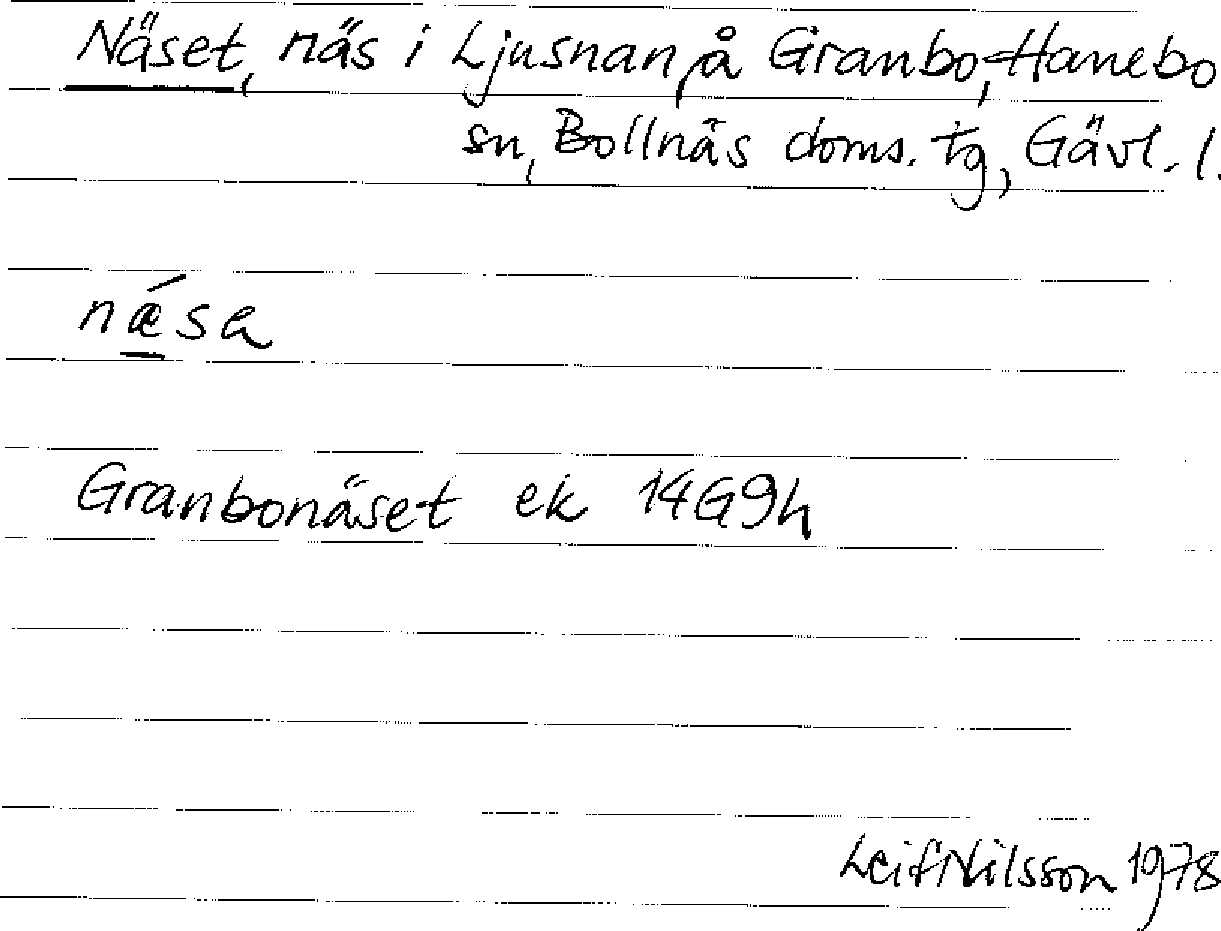 Näset, näs i Ljusnan, å Granbo, Hanebo
sn, Bollnäs doms. tg, Gävl. l.
nǽ̲sa
Granbonäset ek 14G9h
Leif Nilsson 1978